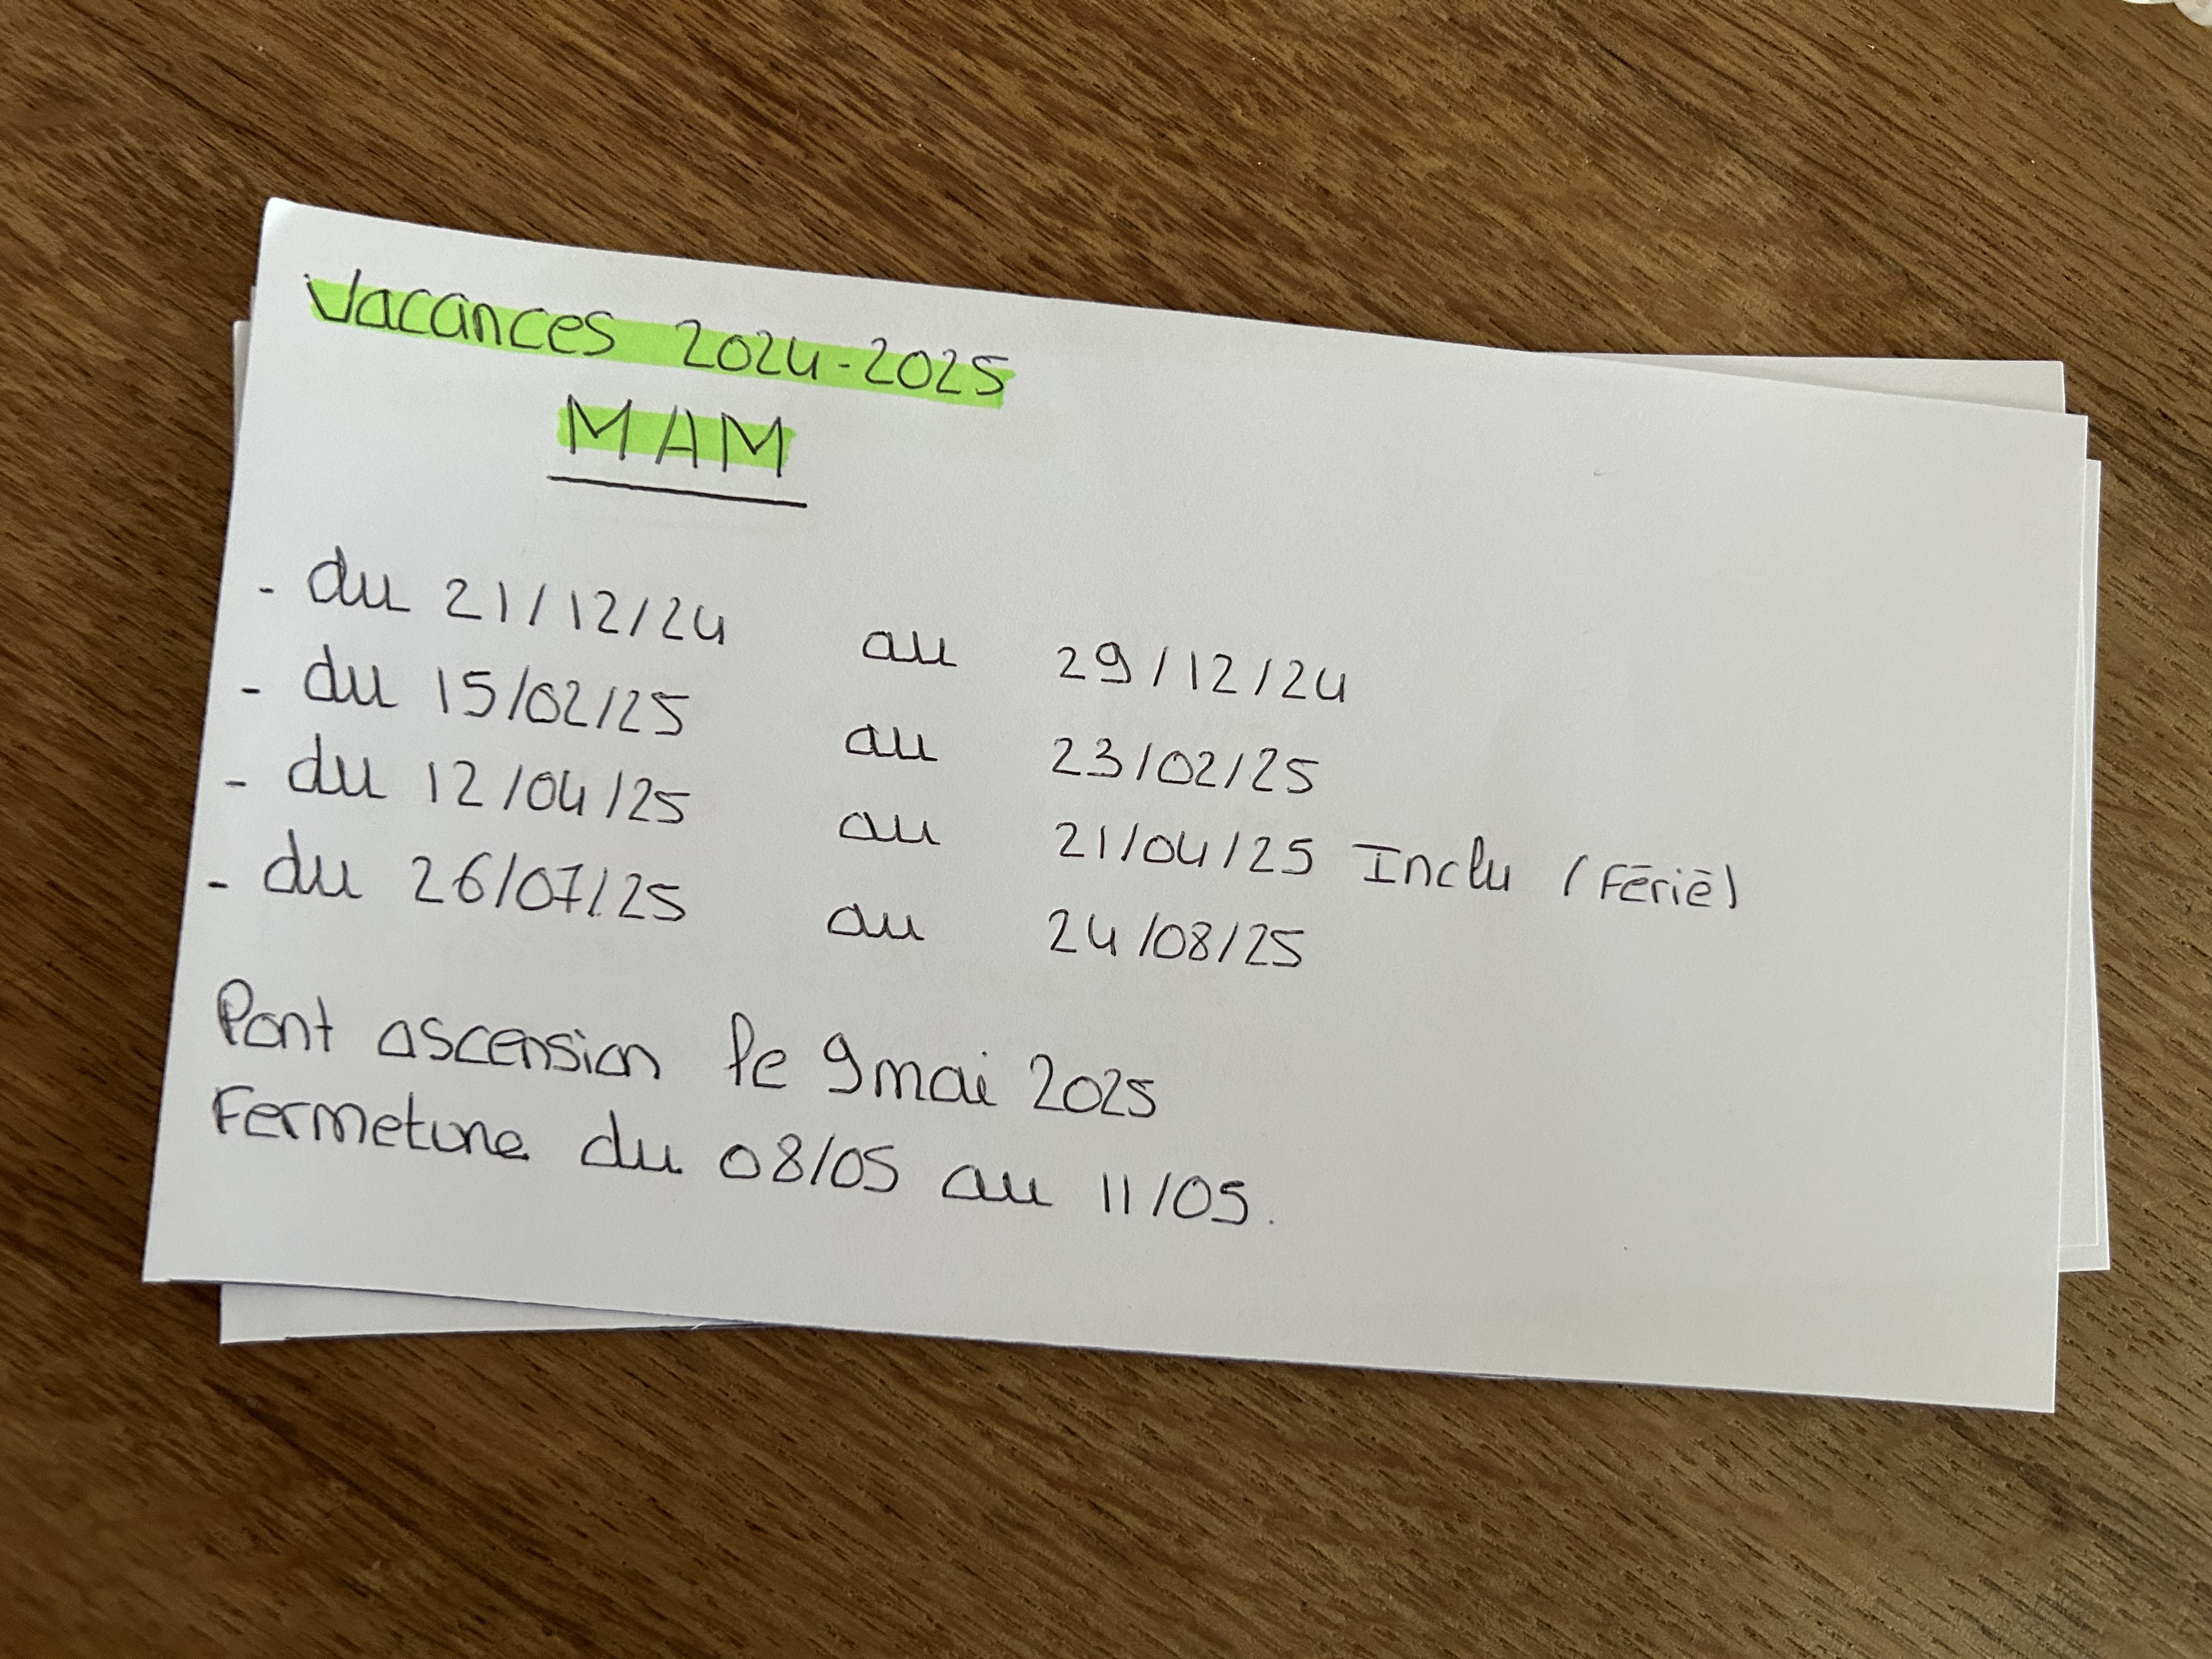 Vacances 2024-2025
MAM
- du 21/12/24 au 29/12/24
- du 15/02/25 au 23/02/25
- du 12/04/25 au 21/04/25 Inclu (Férié)
- du 26/07/25 au 24/08/25
Pont ascension le 9 mai 2025
Fermeture du 08/05 au 11/05.